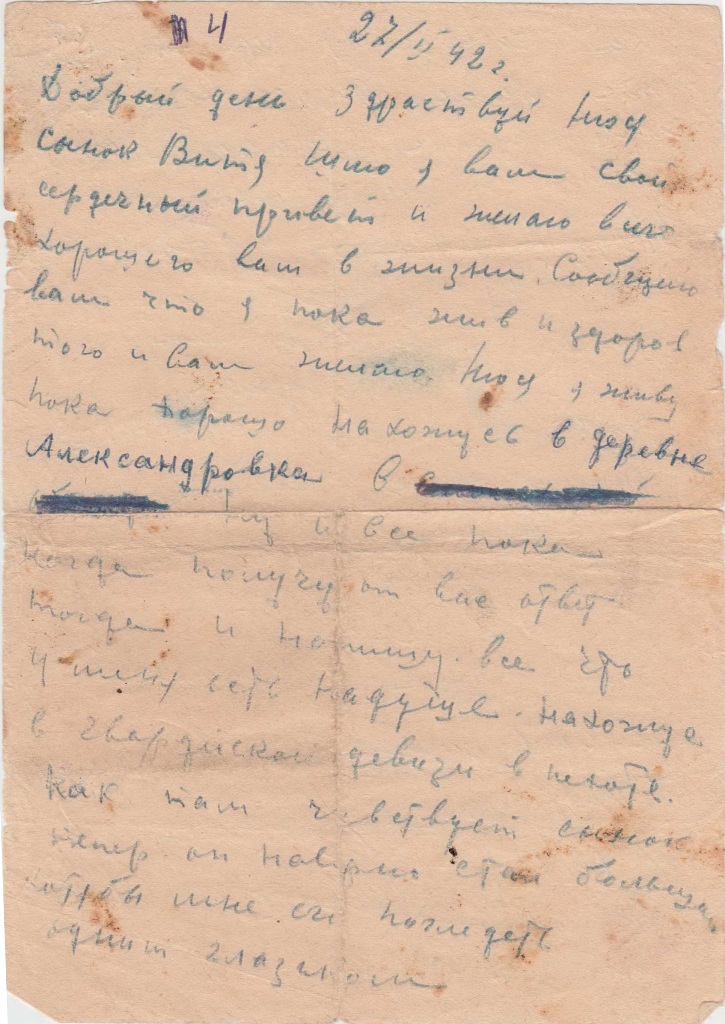 4
27/II 42 г.
Добрый день Здраствуй Нюся
сынок Витя Шлю я вам свой
сердечный привет и желаю всего
хорошего вам в жизни. Сообщаю
вам что я пока жив и здоров
того и вам желаю. Нюся я живу
пока хорошо нахожусь в деревне
Александровка в
Ну и все пока
когда получу от вас ответ
тогда и напишу все что
у меня есть на душе. нахожусь
в гвардейской девизи в пехоте.
Как там чевствует сынок
тепер он наверно стал большой
хотябы мне его погледеть
одним глазиком